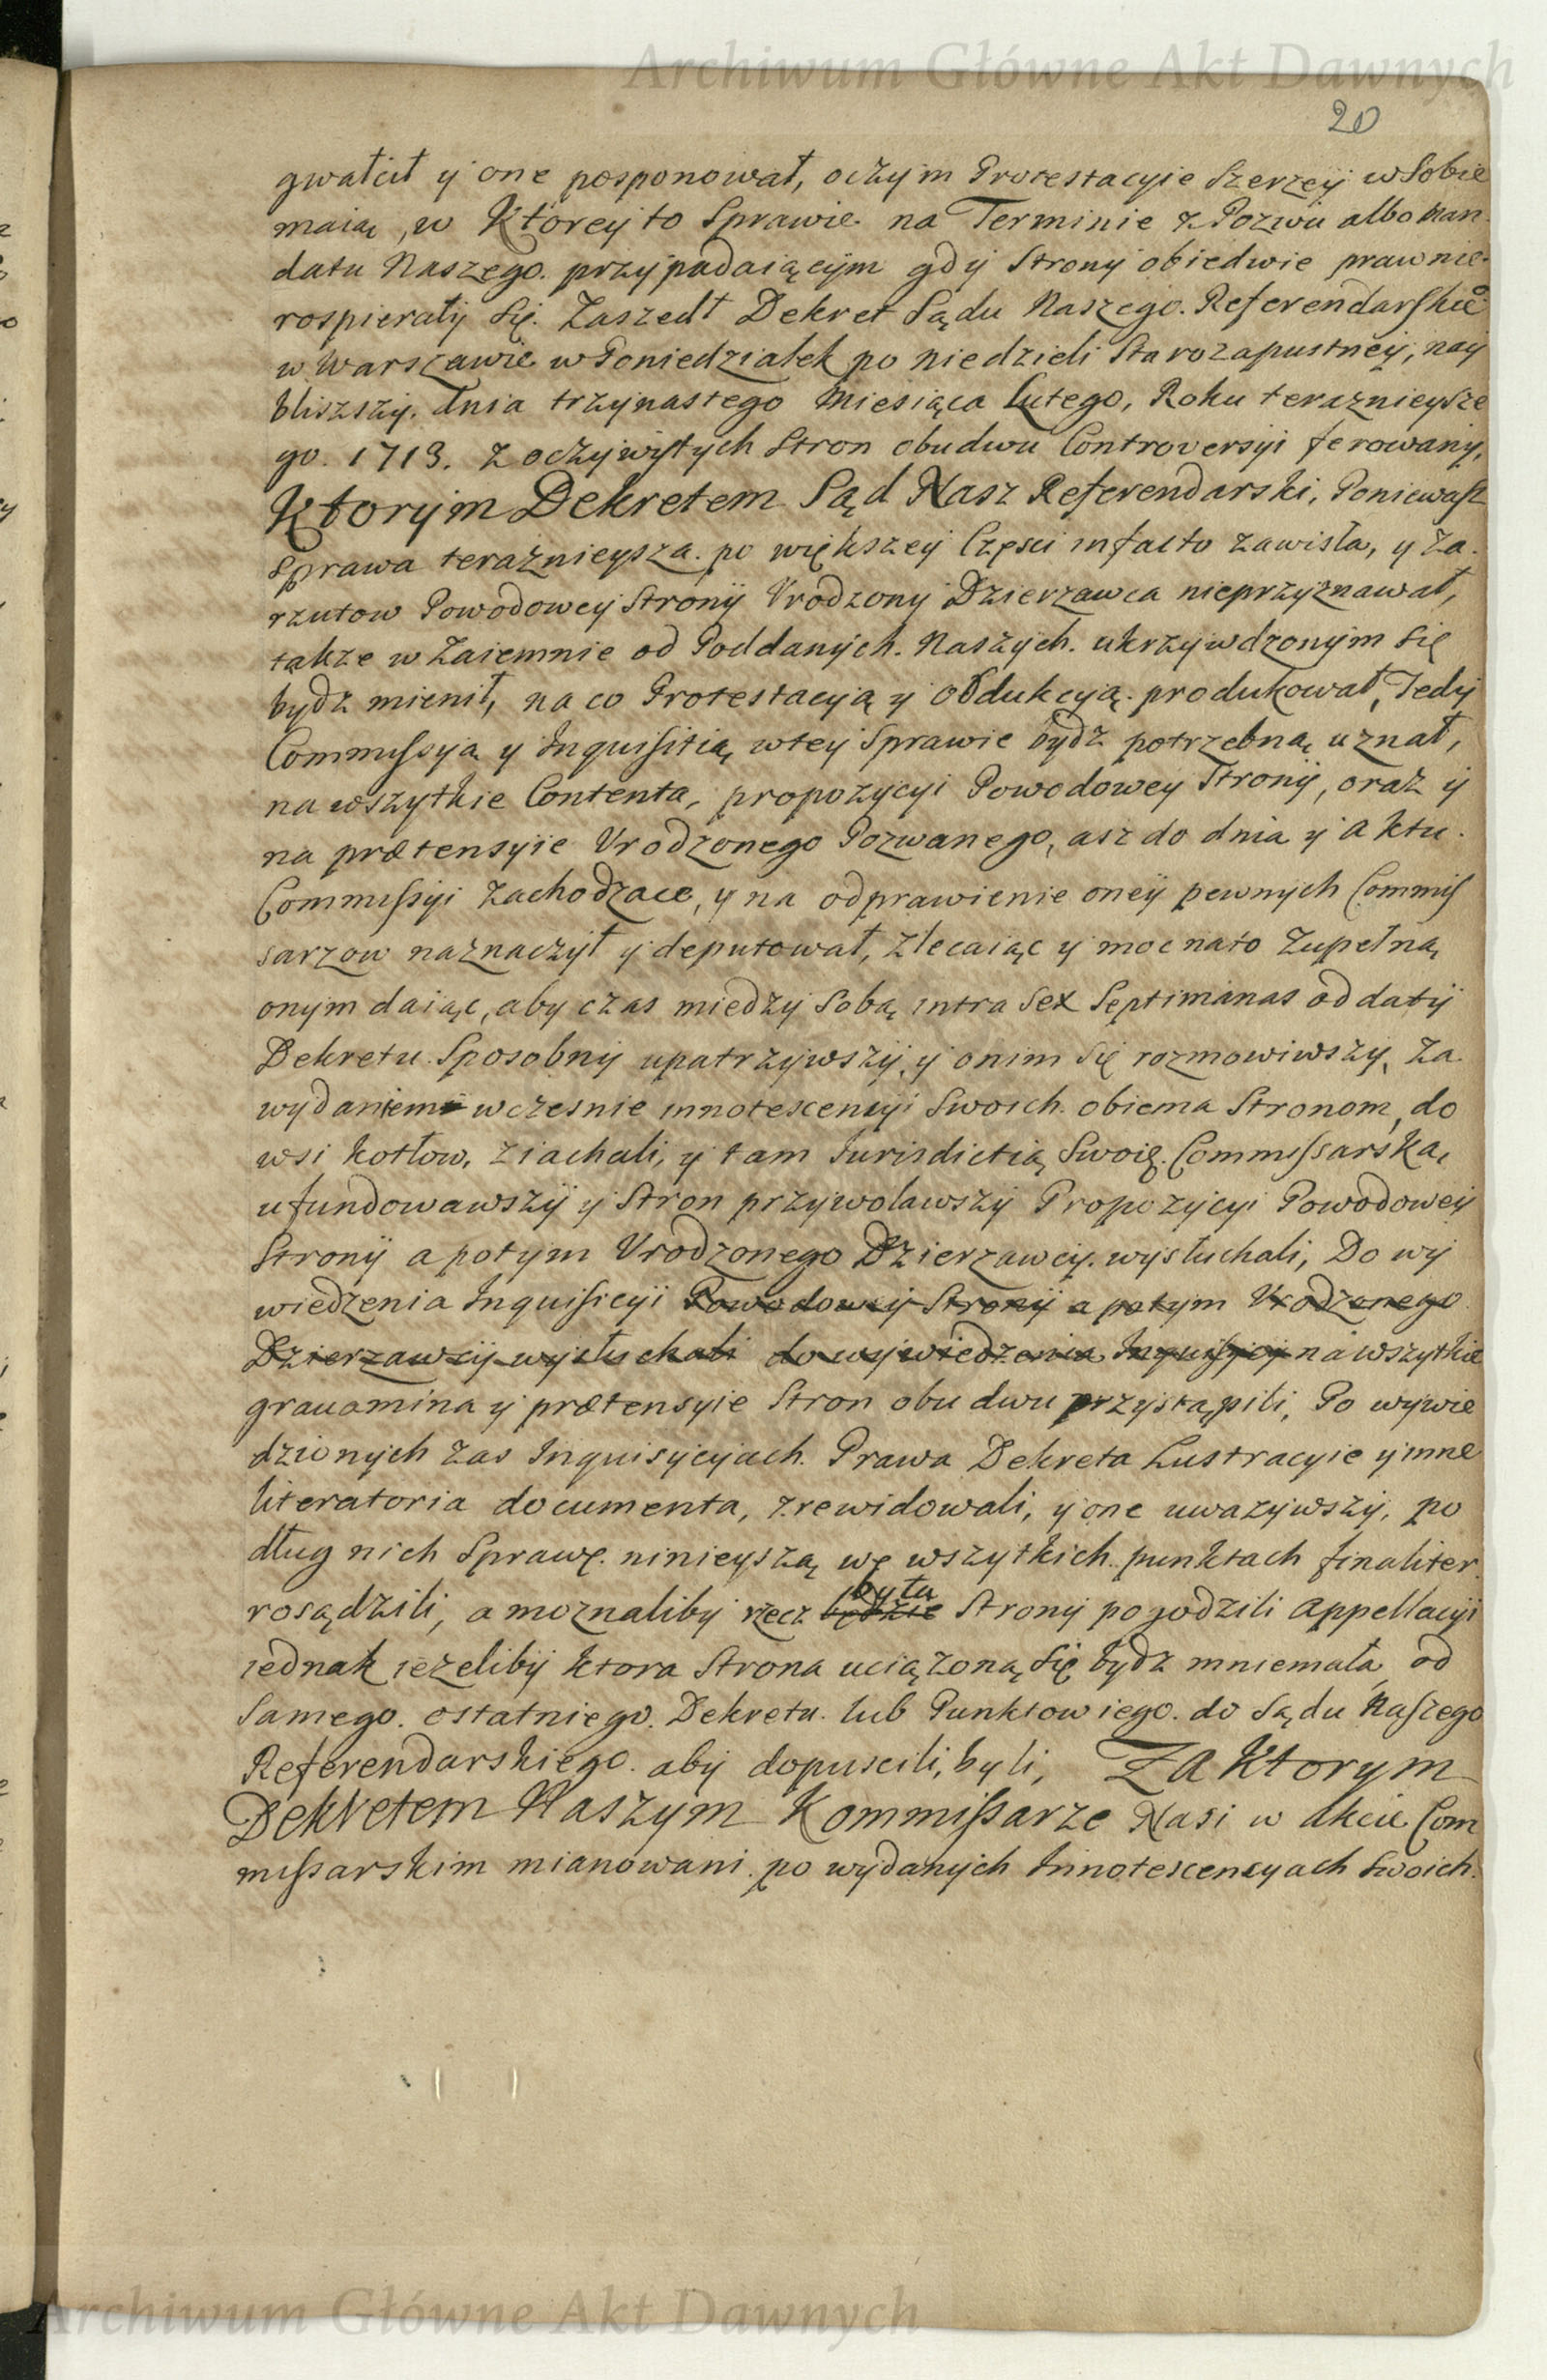 Archiwum Główne Akt Dawnych
20
gwałcił y one posponował, oczym Protestacyie szerzey w Sobie
maią, w Ktorey to Sprawie na Terminie z Pozwu albo Man
datu Naszego przypadaiącym gdy Strony obiedwie prawnie
rospierały się. Zaszedł Dekret Sądu Naszego Referendarskieo
w Warszawie w Poniedziałek po niedzieli Starozapustney, nay
bliszszy. dnia trzynastego Miesiąca Lutego, Roku teraznieysze
go. 1713. z oczywistych Stron obudwu Controversyi ferowany,
Ktorym Dekretem Sąd Nasz Referendarski, Poniewasz
Sprawa teraznieysza po większey Części in facto zawisła, y za
rzutow Powodowey Strony Urodzony Dzierzawca nieprzyznawał,
także wzaiemnie od Poddanych Naszych ukrzywdzonym się
bydz mienił, na co Protestacyą y obdukcyą produkował, Tedy
Commissyą y Inquisitią wtey Sprawie bydz potrzebną uznał,
na wszytkie Contenta, propozycyi Powodowey Strony, oraz y
na prætensyie Urodzonego Pozwanego, asz do dnia y Aktu
Commissyi zachodzące, y na odprawienie oney pewnych Commis
sarzow naznaczył y deputował, zlecaiąc y moc nato zupełną
onym daiąc, aby czas miedzy sobą intra sex Septimanas od daty
Dekretu sposobny upatrzywszy, y onim się rozmowiwszy, za
wydaniem wczesnie innotescencyi Swoich obiema Stronom, do
wsi Kotłow, ziachali, y tam Jurisdictią Swoię Commissarską
ufundowawszy y Stron przywoławszy Propozycyi Powodowey
Strony a potym Urodzonego Dzierzawcy wysłuchali, Do wy
wiedzenia Inquisicyi Powodowey Strony a potym Urodzonego
Dzierzawcy wysłuchali do wywiedzenia Inquisycyi na wszytkie
grauamina y prætensyie Stron obu dwu przystąpili, Po wywie
dzionych zas Inquisycyiach Prawa Dekreta Lustracyie y inne
literatoria documenta, zrewidowali, y one uwazywszy, po
dług nich Sprawę ninieyszą we wszytkich punktach finaliter
rosądzili, a moznaliby rzecz będzie była Strony pogodzili Appellacyi
iednak iezeliby ktora Strona uciążoną się bydz mniemała, od
Samego ostatniego Dekretu lub Punktow iego do Sądu Naszego
Referendarskiego aby dopuscili, byli, Za Ktorym
Dekretem Naszym Kommissarze Nasi w Akcie Com
missarskim mianowani po wydanych Innotescencyach Swoich
Archiwum Główne Akt Dawnych